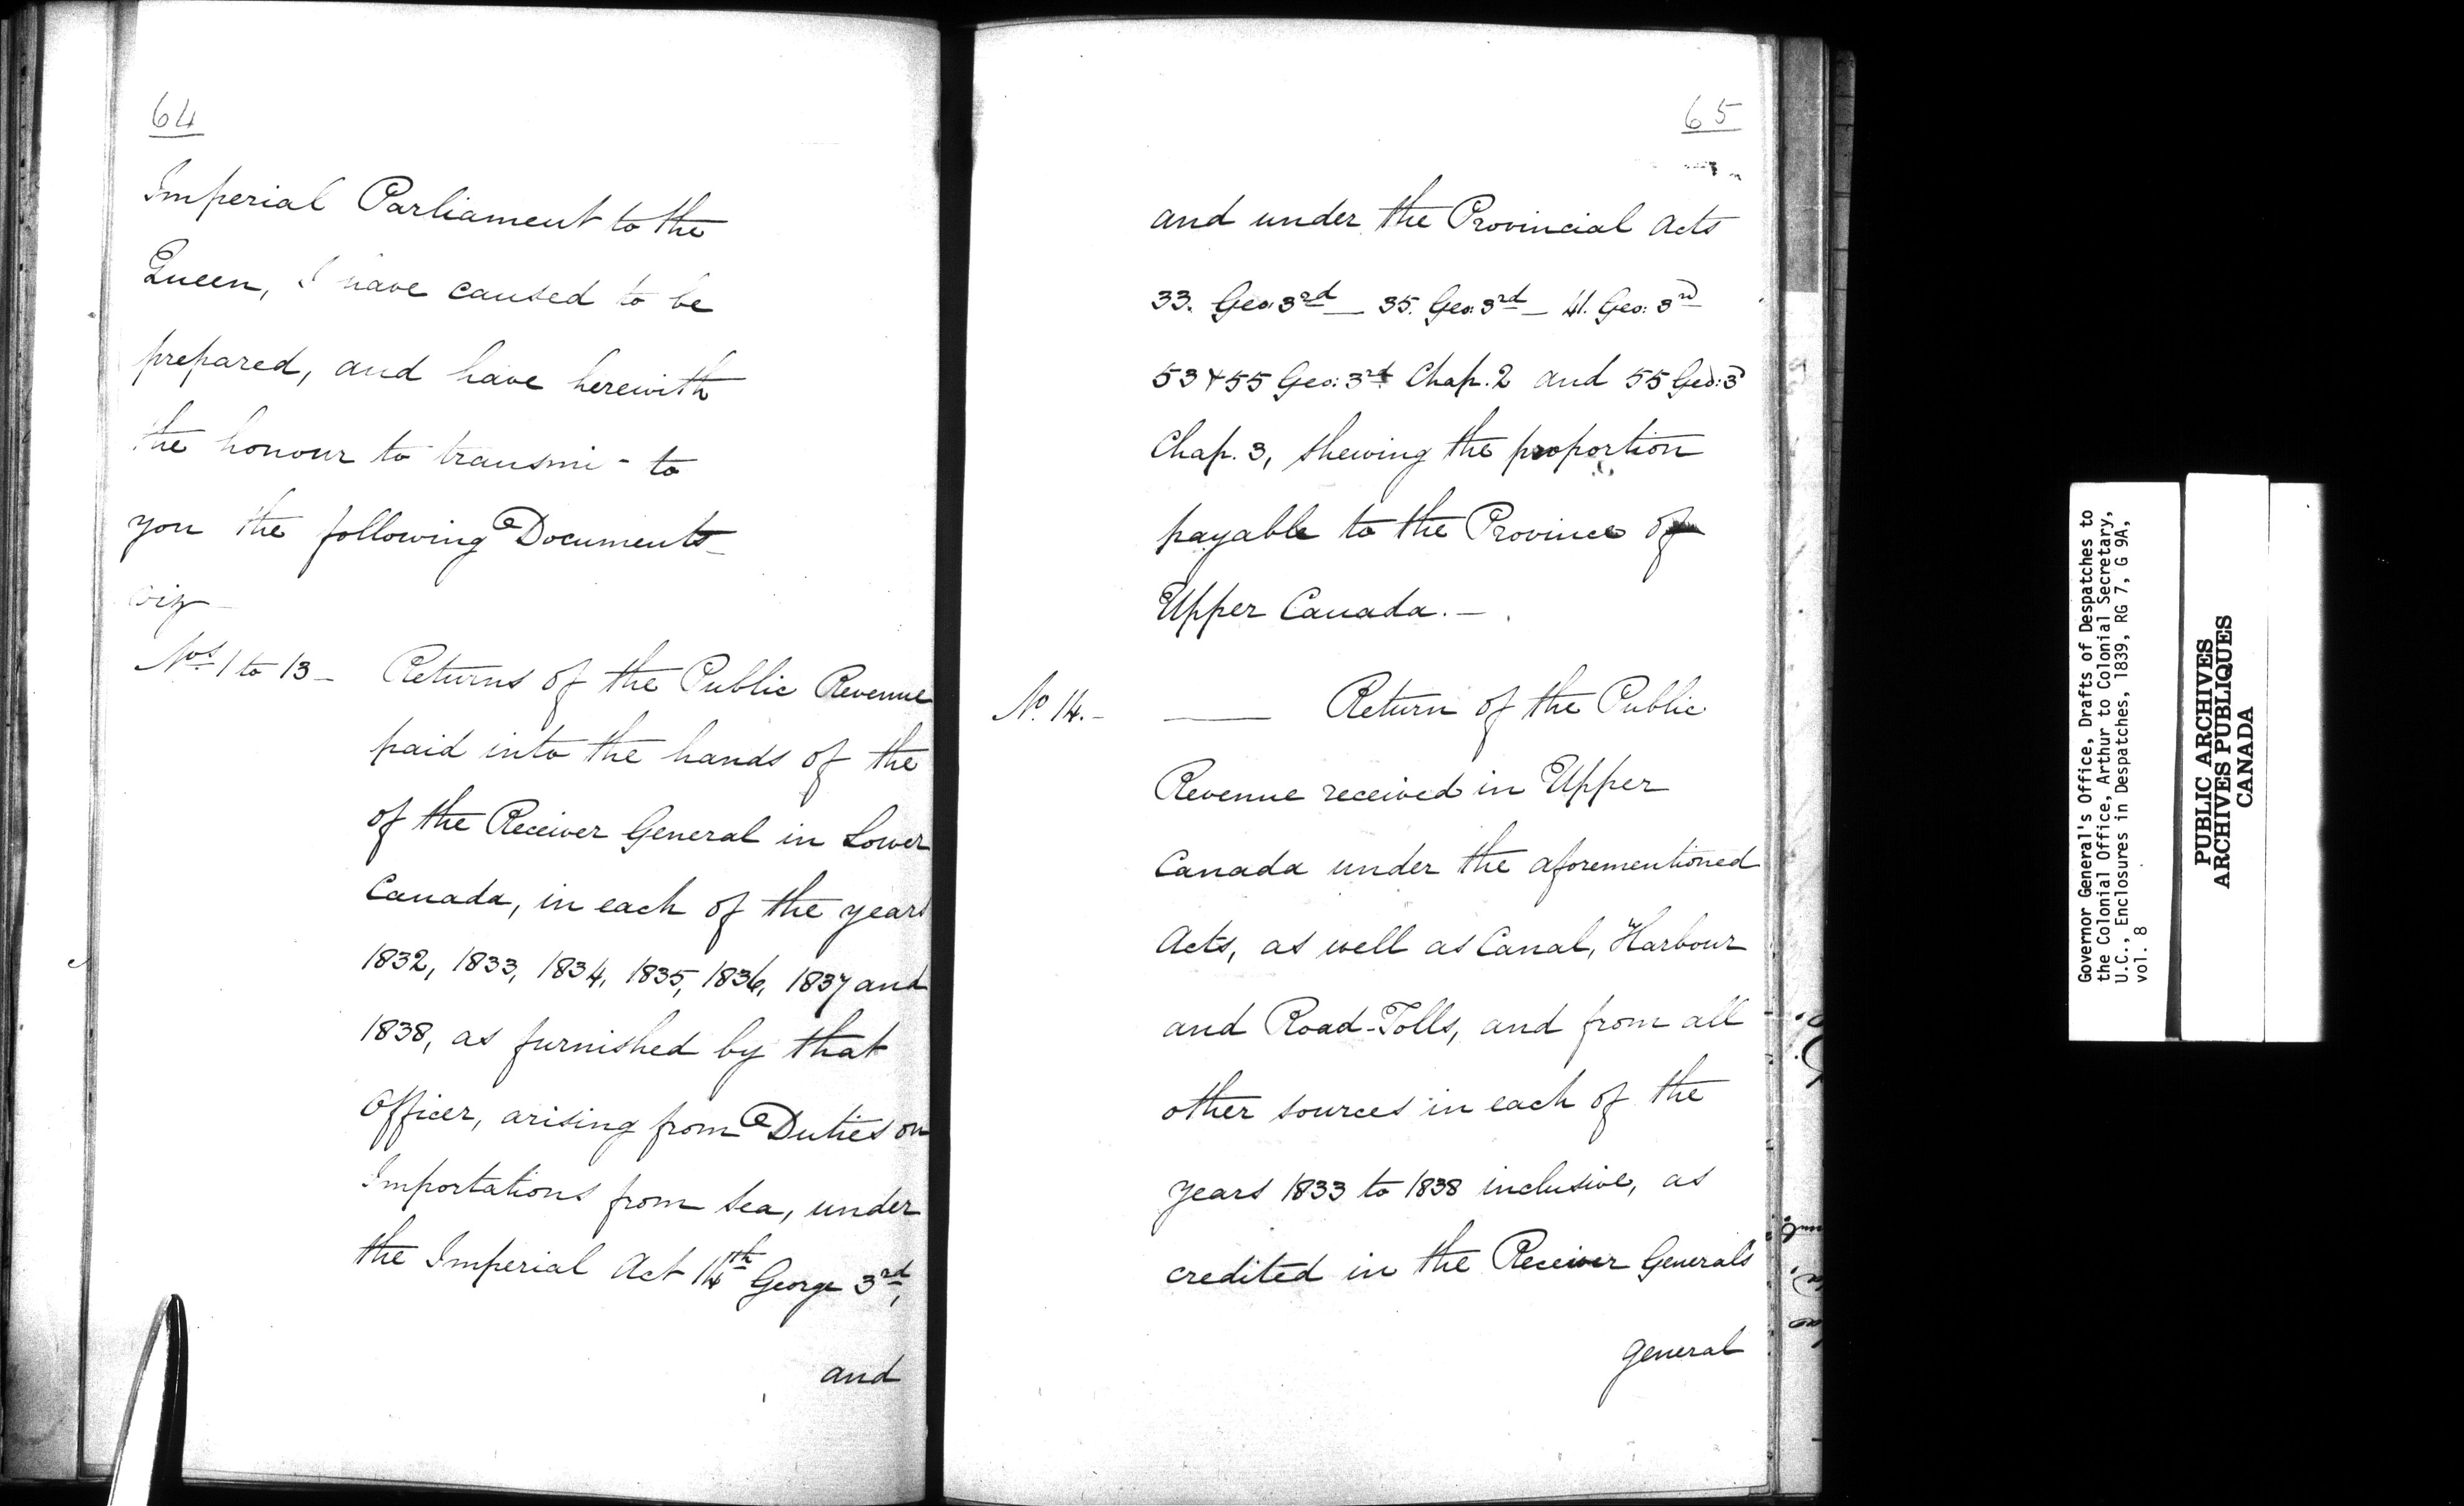 64
Imperial Parliament to the
Queen, I have caused to be
prepared, and have herewith
the honour to transmi- to
you the following Documents
viz
Nos. 1 to 13 - Returns of the Public Revenue
paid into the hands of the
of the Receiver General in Lower
Canada, in each of the years
1832, 1833, 1834, 1835, 1836, 1837 and
1838, as furnished by that
Officer, arising from Duties on
Importations from Sea, under
the Imperial Act 14th George 3rd,
and
65
and under the Provincial Acts
33. Geo: 3rd — 35. Geo: 3rd — 41. Geo: 3rd
53 & 55 Geo: 3rd Chap. 2 and 55 Geo: 3
Chap. 3, shewing the proportion
payable to the Province of
Upper Canada. —
No. 14. - — Return of the Public
Revenue received in Upper
Canada under the aforementioned
Acts, as well as Canal, Harbour
and Road-Tolls, and from all
other sources in each of the
years 1833 to 1838 inclusive, as
credited in the Receiver Generals
General
Governor General's Office, Drafts of Despatches to
the Colonial Office, Arthur to Colonial Secretary,
U.C., Enclosures in Despatches, 1839, RG 7, G 9A,
vol. 8
PUBLIC ARCHIVES
ARCHIVES PUBLIQUES
CANADA